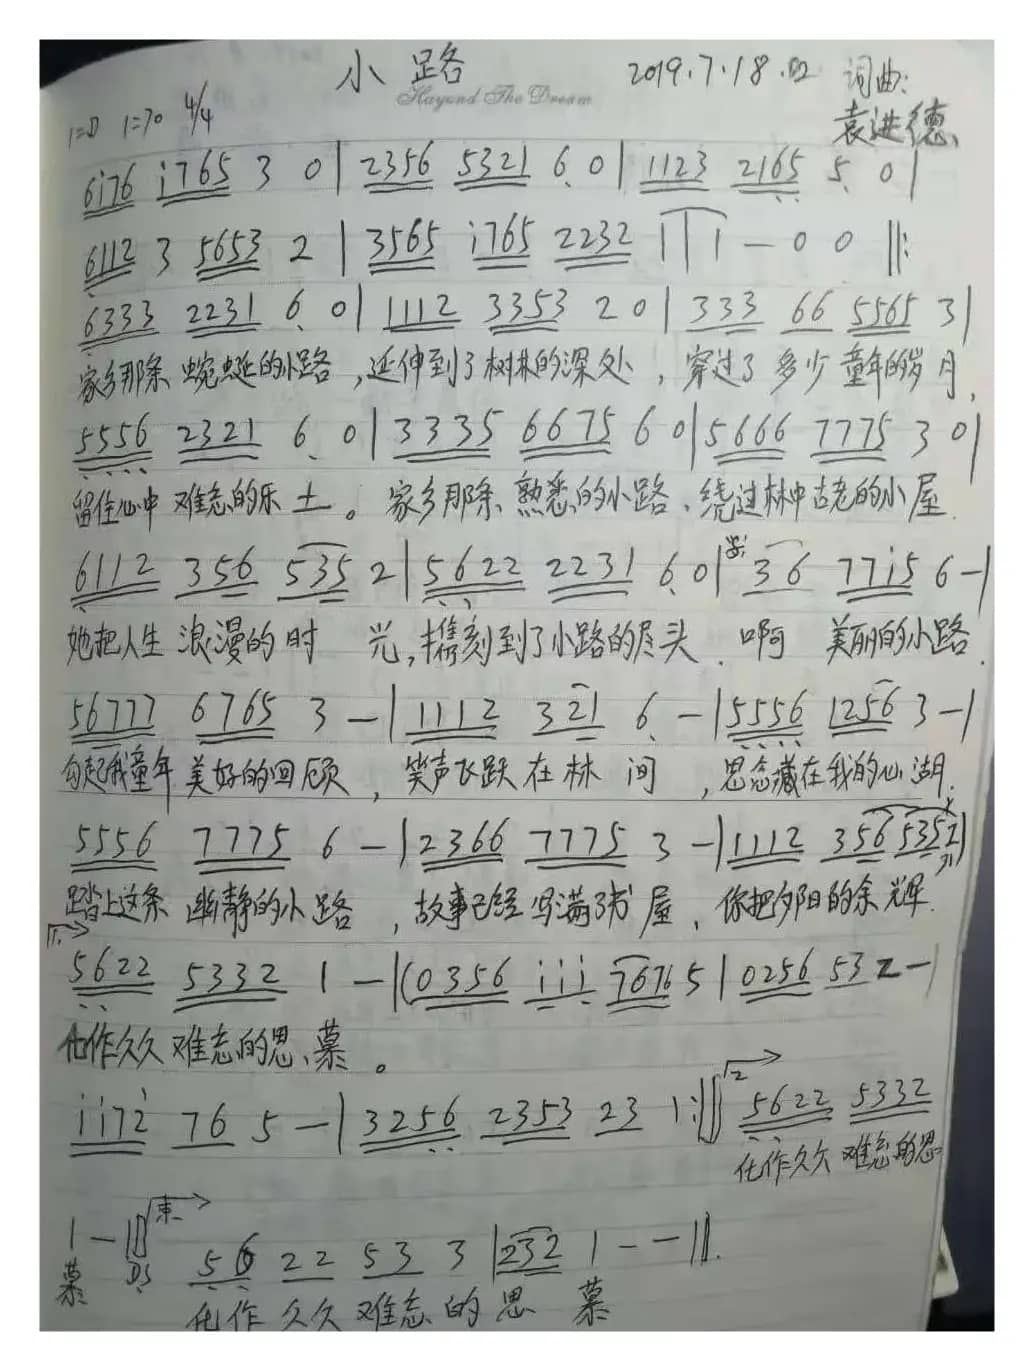 小路 2019.7.18.晚 词曲:
Hayond The Dream
1=D 1=70 4/4 袁进德
6i76 i765 3 0 | 2356 5321 6 0 | 1123 2165 5 0 |
6112 3 5653 2 | 3565 i765 2232 1 | 1 1 - 0 0 ||:
6333 2231 6 0 | 1112 3353 2 0 | 333 66 5565 3 |
家乡那条 蜿蜒的小路 ,延伸到了树林的深处 , 穿过了 多少 童年的岁月,
5556 2321 6 0 | 3335 6675 6 0 | 5666 7775 3 0 |
留住心中 难忘的乐土。 家乡那条 熟悉的小路 、绕过林中古老的小屋.
6112 356 535 2 | 5622 2231 6 0 | 36 77i5 6 - |
她把人生 浪漫的时 光, 携刻到了小路的尽头 . 啊 美丽的小路.
56777 6765 3 - | 1112 321 6 - | 5556 1256 3 - |
勾起我童年 美好的回顾 , 笑声飞跃在林间 , 思念藏在我的心湖.
5556 7775 6 - | 2366 7775 3 - | 1112 356 5352 |
踏上这条 幽静的小路 , 故事已经写满了书屋 , 你把夕阳的余辉.
1.
5622 5332 1 - | (0356 iii 7676 5 | 0256 53 2 - |
化作久久 难忘的思慕。
ii72 76 5 - | 3256 2353 23 1 :|| 2 5622 5332
化作久久 难忘的思
1 - || 末 56 22 53 3 | 232 1 - - ||.
慕 DS 化作 久久 难忘 的 思 慕